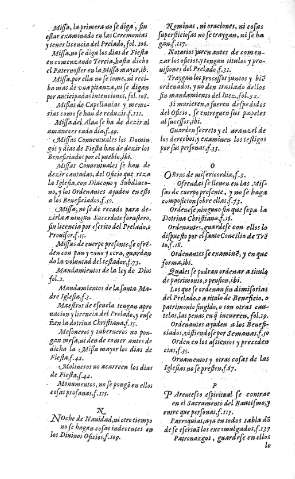 Missa, la primera no se diga, sin
estar examinado en las Ceremonias
y tener licencia del Prelado, fol. 106.
Missas no se digan los dias de Fiesta
en comenzando Tercia, hasta dicho
el Paternoster en la Missa mayor, ibi.
Missas por ella no se tome, ni reciba
mas de una pitanza, ni se digan
por anticipadas intenciones, fol. 106.
Missas de Capellanias y memorias
como se han de reducir. f. 111.
Missa del Alva se ha de dezir al
amanecer cada dia. f. 49.
Missas Conventuales los Domingos
y dias de Fiesta han de dezir los
Beneficiados por el pueblo, ibi.
Missas Conventuales se han de
dezir cantadas, del Oficio que reza
la Iglesia, con Diacono y Subdiacono,
y los Ordenantes ayuden en esto
a los Beneficiados. f. 50.
Missa, no se de recado para dezirla
a ningun Sacerdote forastero,
sin licencia por escrito del Prelado, o
Provisor. f. 51.
Missas de cuerpo presente, se ofrenden
con pan y vino y cera, guardando
la voluntad del testador. f. 73.
Mandamientos de la ley de Dios
fol. 2.
Mandamientos de la santa Madre
Iglesia. f. 3.
Maestros de escuela tengan aprobacion
y licencia del Prelado, y enseñen
la dotrina Christiana. f. 15.
Mesoneros y taberneros no pongan
mesa, ni den de comer antes de
dicha la Missa mayor los dias de
Fiesta. f. 42.
Molineros no acarreen los dias
de Fiesta, f. 42.
Monumentos, no se pongan en ellos
cosas profanas. f. 115.
N
Noche de Navidad, ni otro tiempo
no se hagan cosas indecentes en
los Divinos Oficios. f. 109.
Nominas, ni oraciones, ni cosas
supersticiosas no se traygan, ni se hagan.
f. 117.
Notarios juren antes de comenzar
los oficios, y tengan titulos y provisiones
del Prelado. f. 31.
Traygan los processos juntos y bien
ordenados, y no den traslado dellos
sin mandamientos del Iuez. f. 32.
Si murieren, o fueren despedidos
del Oficio, se entreguen sus papeles
al successor, ibi.
Guarden secreto y el aranzel de
los derechos, y examinen los testigos
por sus personas. f. 33.
O
Obras de misericordia, f. 5.
Ofrendas se lleven en las Missas
de cuerpo presente, y no se haga
composicion sobre ellas. f. 73.
Ordenese ninguno sin que sepa la
Dotrina Christiana. f. 15.
Ordenantes, guardese con ellos lo
dispuesto por el santo Concilio de Trento,
f. 18.
Ordenantes se examinen, y en que
forma, ibi.
Quales se podran ordenar a titulo
de patrimonio, o pension, ibi.
Los que se ordenan sin dimisorias
del Prelado, o a titulo de Beneficio, o
patrimonio fingido, o con otras cautelas,
las penas en que incurren, fol. 19.
Ordenantes ayuden en los Beneficiados,
vistiendose por Semanas. f. 50
Orden en los assientos y precedencias,
f. 55.
Ornamentos y otras cosas de las
Iglesias no se presten. f. 67.
P
Parentesco espiritual se contrae
en el Sacramento del Bautismo, y
entre que personas. f. 111.
Parroquias, aya en todos tabla donde
se escriban los excomulgados. f. 137
Patronazgos, guardese en ellos
lo